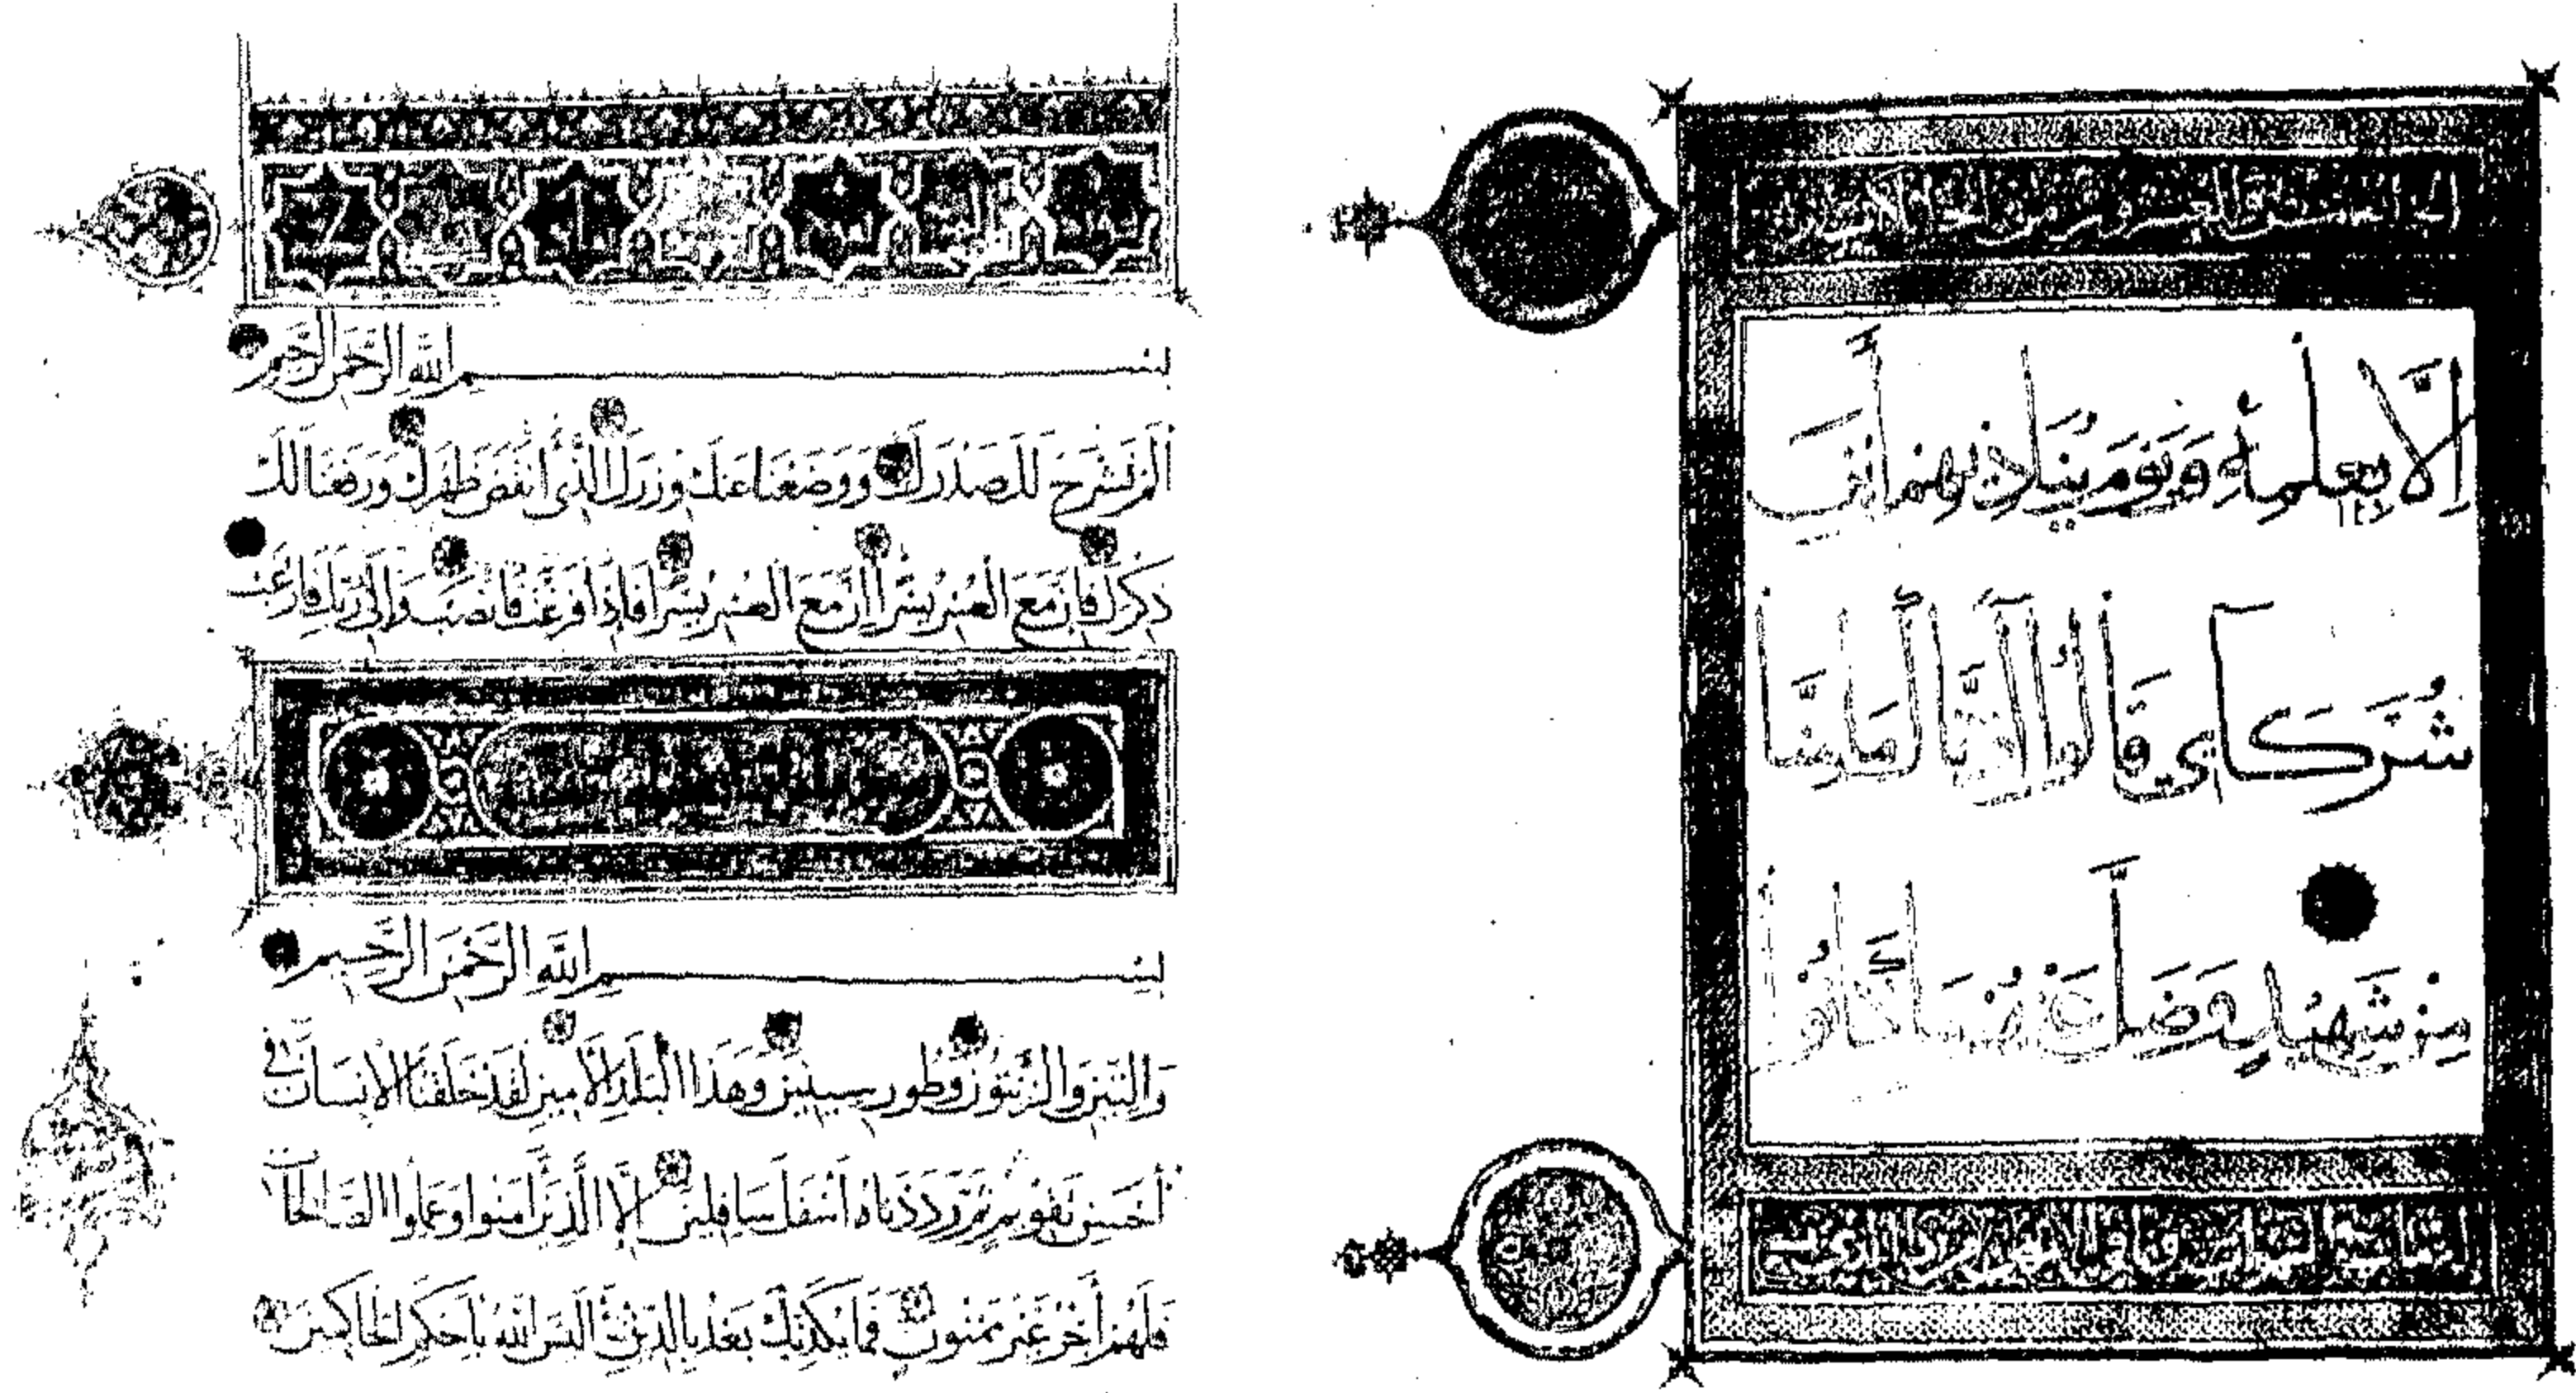 إلا بعلمه ويوم يناديهم أين
شركاي قالوا آذناك ما منا
من شهيد وضل عنهم ما كانوا
بسم الله الرحمن الرحيم
ألم نشرح لك صدرك ووضعنا عنك وزرك الذي أنقض ظهرك ورفعنا لك
ذكرك فإن مع العسر يسرا إن مع العسر يسرا فإذا فرغت فانصب وإلى ربك فارغب
بسم الله الرحمن الرحيم
والتين والزيتون وطور سينين وهذا البلد الأمين لقد خلقنا الإنسان في
أحسن تقويم ثم رددناه أسفل سافلين إلا الذين آمنوا وعملوا الصالحات
فلهم أجر غير ممنون فما يكذبك بعد بالدين أليس الله بأحكم الحاكمين